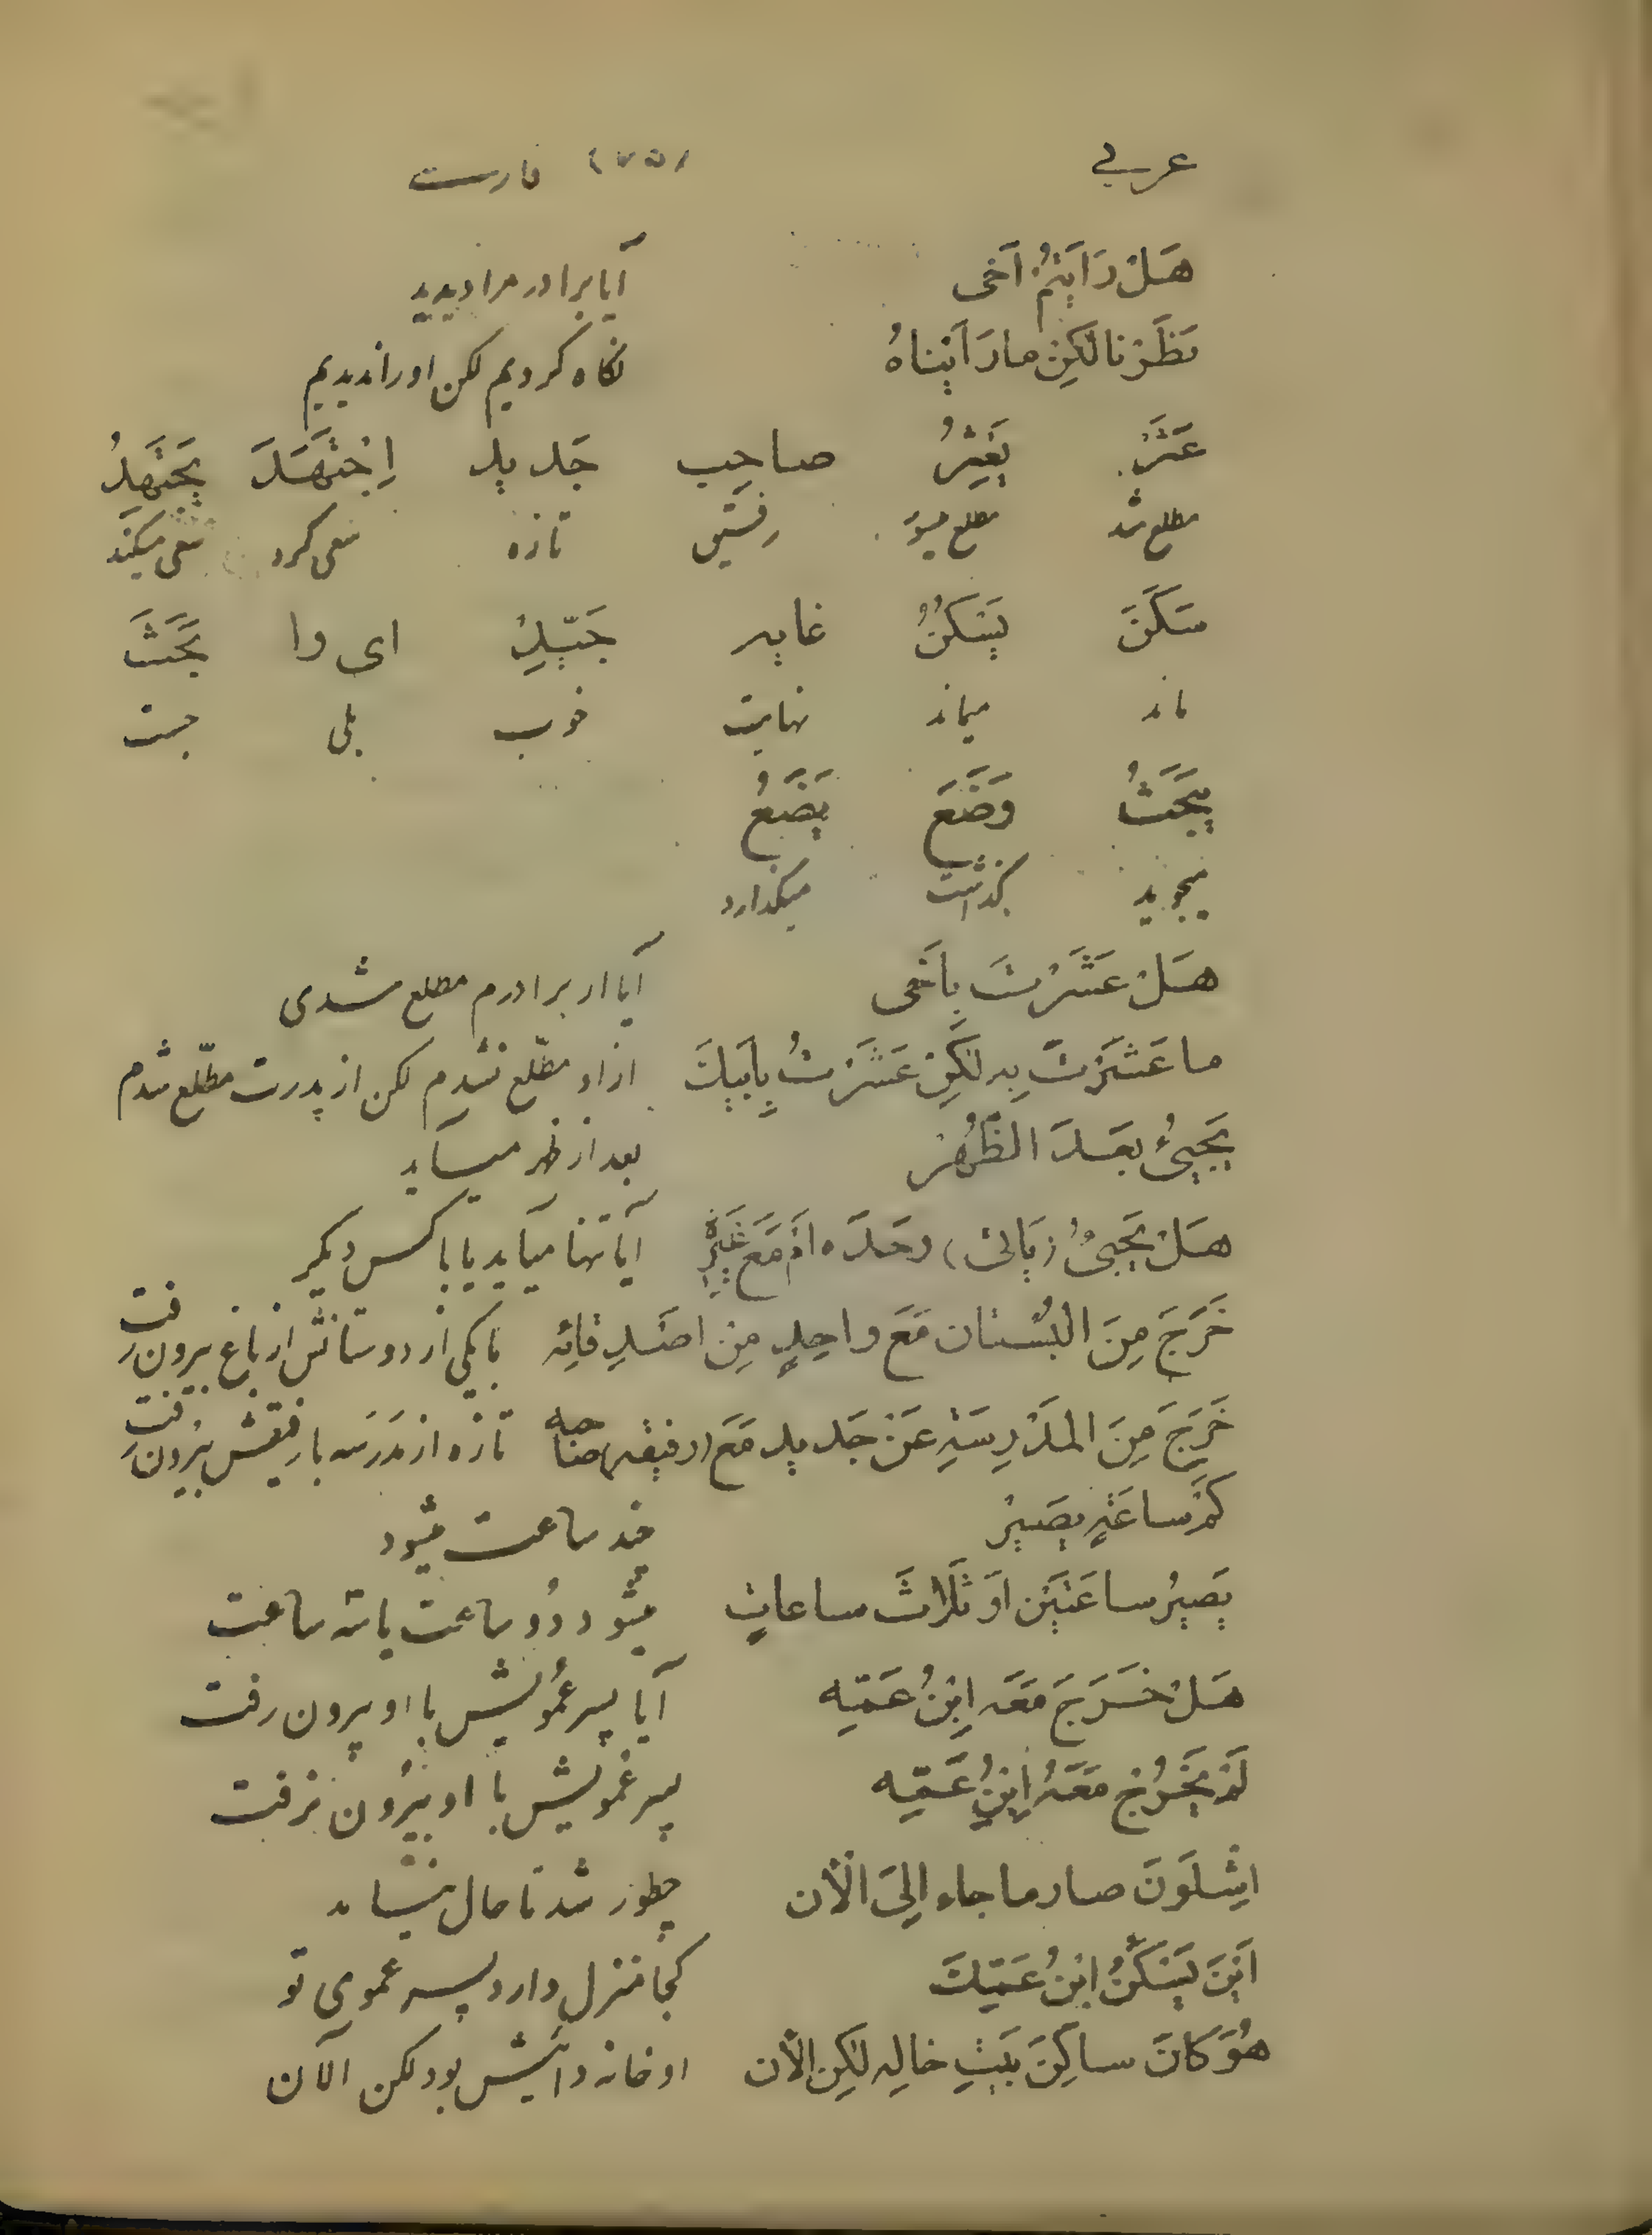 عربي (٧٥) فارسی
هَلْ رَاَيْتُمْ اَخى آیا برادر مرا دیدید
نَظَرْنا لكِنْ ما رَاَيْناهُ نگاه کردیم لکن او را ندیدیم
عَثَرَ يَعْثِرُ صاحِب جَديد اِجْتَهَدَ يَجْتَهِدُ
مطلع شد مطلع میشود رفیق تازه سعی کرد سعی میکند
سَكَنَ يَسْكُنُ غايه جَيِّدْ اى وا بَحَثَ
ماند میماند نهایت خوب بلی جست
يَبْحَثُ وَضَعَ يَضَعُ
میجوید گذاشت میگذارد
هَلْ عَثَرْتَ بِاَخى آیا از برادرم مطلع شدی
ما عَثَرْتُ بِه لكِنْ عَثَرْتُ بِاَبيكَ از او مطّلع نشدم لکن از پدرت مطّلع شدم
يَجيئُ بَعْدَ الظُهْر بعد از ظهر میآید
هَلْ يَجيئُ (يَاْتى) وحدَه اَمْ مَعَ غَيْرِه آیا تنها میآید یا با کس دیگر
خَرَجَ مِنَ البُسْتان مَعَ واحِدٍ مِنْ اصْدِقائِه با یکی از دوستانش از باغ بیرون رفت
خَرَجَ مِنَ المَدْرِسَةِ عَنْ جَديد مَعَ (رفيقه) صاحبه تازه از مَدرَسه با رفیقش بیرُون رفت
كَمْ ساعَةٍ يَصيرْ چند ساعت میشود
يَصيرُ ساعَتَيْن اَوْ ثَلاثَ ساعاتٍ میشود دُو ساعت یا سه ساعت
هَلْ خَرَجَ مَعَه اِبْنُ عَمِّه آیا پسر عُمویش با او بیرون رفت
لَمْ يَخْرُجْ مَعَهُ اِبْنُ عَمِّه پسر عمویش با او بیرُون نرفت
اِشْلَوْنَ صار ما جاء اِلىَ الْاٰن چطور شد تا حال نیامد
اَيْنَ يَسْكُنُ ابْنُ عَمِّكَ کجا منزل دارد پسر عموی تو
هُوَ كانَ ساكِنَ بَيْتِ خالِه لكِن الْاٰن او خانه دائیش بود لکن الآن